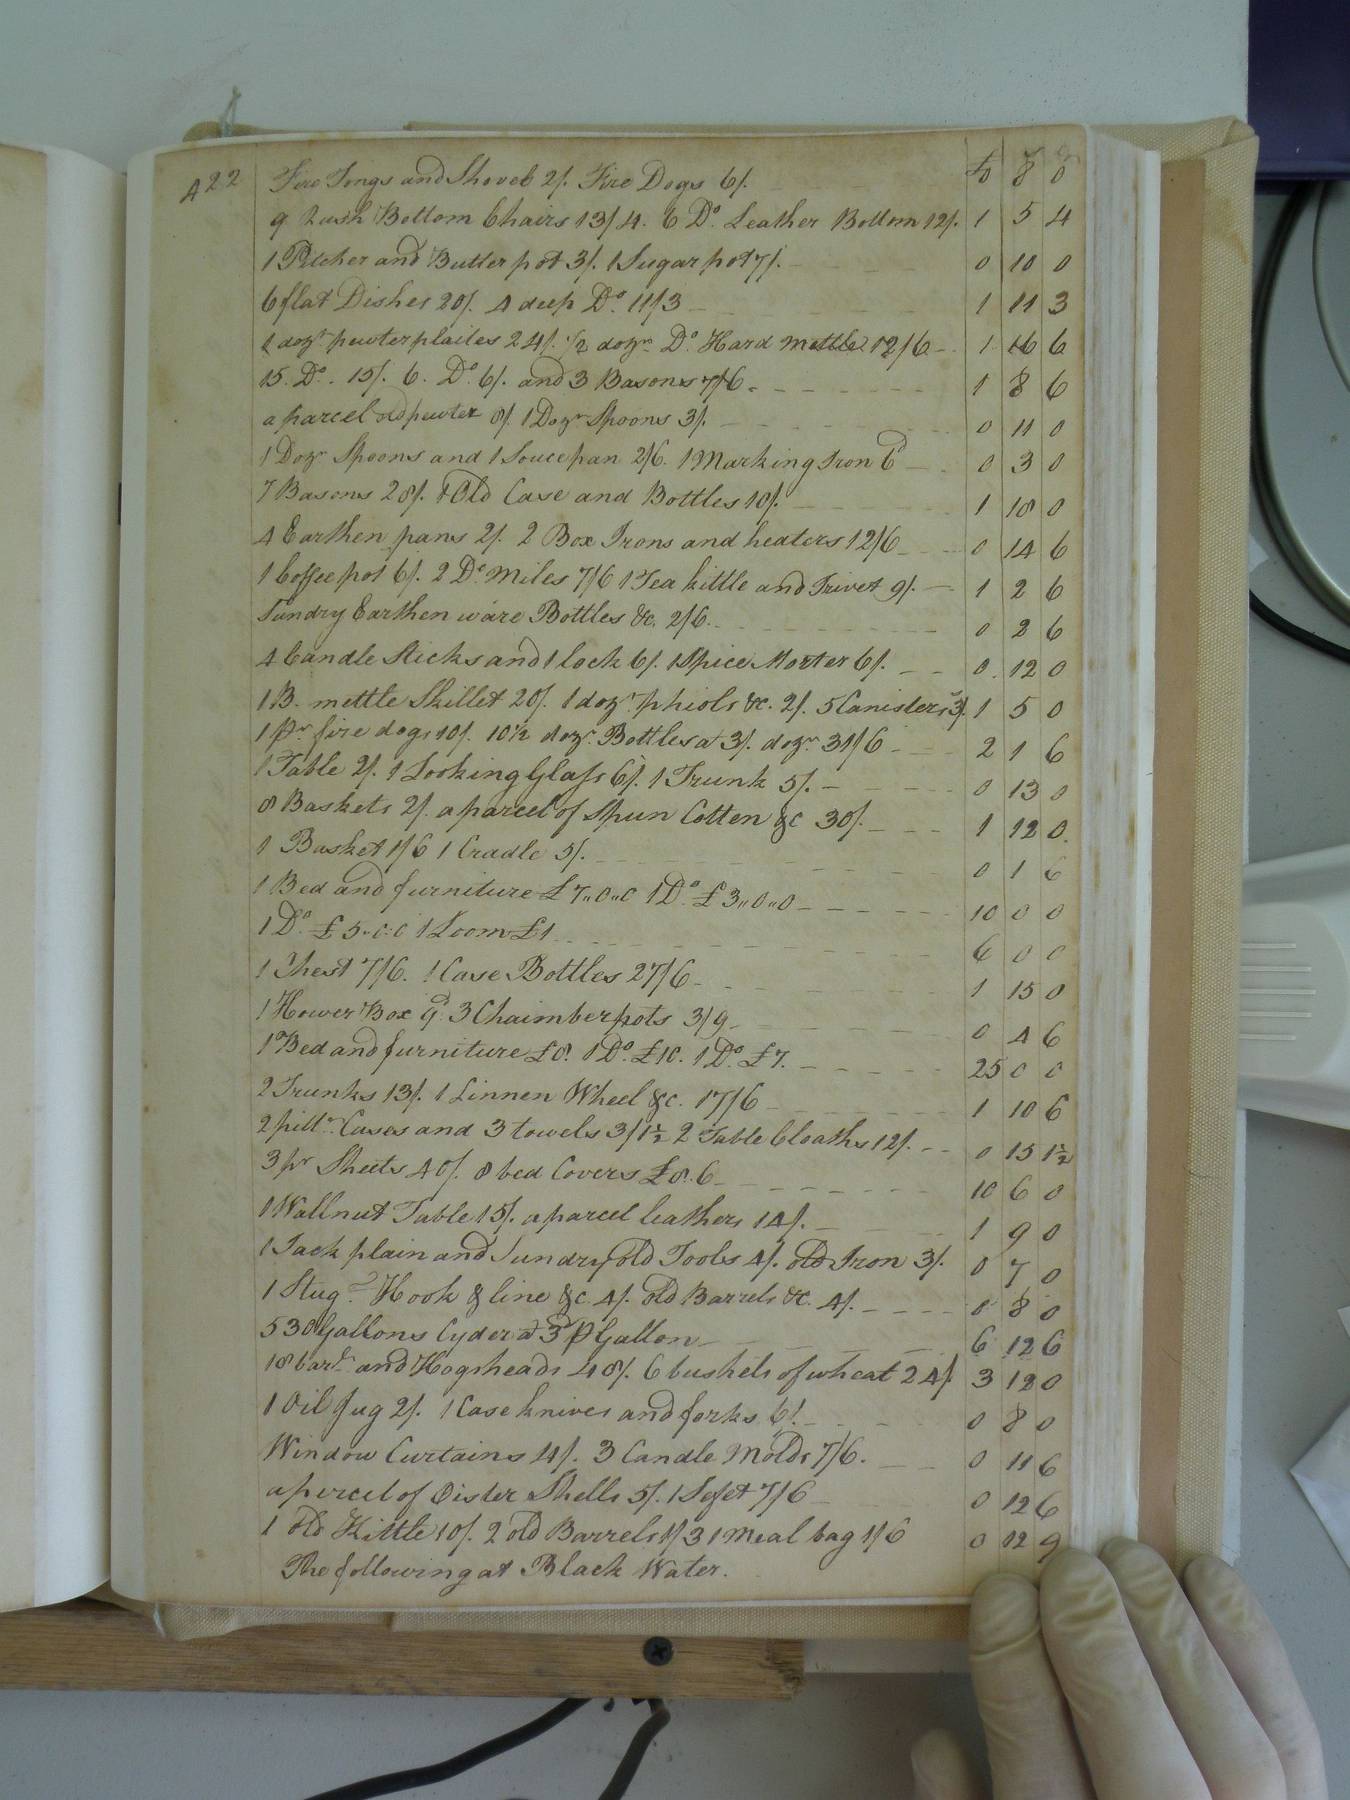 422 Fire Tongs and Shovel 2/. Fire Dogs 6/. £0 8 0
9 Rush Bottom Chairs 13/4. 6 Do. Leather Bottom 12/. 1 5 4
1 Pitcher and Butter pot 3/. 1 Sugar pot 7/. 0 10 0
6 flat Dishes 20/. 4 deep Do. 11/3 1 11 3
1 dozn pewter plaites 24/. 1/2 dozn. Do. Hard mettle 12/6 1 16 6
15. Do. 15/. 6. Do. 6/. and 3 Basons 7/6 1 8 6
a parcel old pewter 8/. 1 Dozn Spoons 3/. 0 11 0
1 Dozn Spoons and 1 Soucepan 2/6. 1 Marking Iron 6d 0 3 0
7 Basons 28/. 1 Old Case and Bottles 10/. 1 18 0
4 Earthen pans 2/. 2 Box Irons and heaters 12/6 0 14 6
1 Coffee pot 6/. 2 Do. Miles 7/6 1 Tea kittle and Trivet 9/. 1 2 6
Sundry Earthen ware Bottles &c. 2/6. 0 2 6
4 Candle Sticks and 1 lock 6/. 1 Spice Morter 6/. 0. 12 0
1 B. mettle Skillet 20/. 1 dozn phiols &c. 2/. 5 Canisters 3/. 1 5 0
1 Pr fire dogs 10/. 10 1/2 dozn. Bottles at 3/. dozn 31/6 2 1 6
1 Table 2/. 1 Looking Glass 6/. 1 Trunk 5/. 0 13 0
8 Baskets 2/. a parcel of Spun Cotten &c 30/. 1 12 0.
1 Basket 1/6 1 Cradle 5/. 0 1 6
1 Bed and furniture £7,,0,,0 1 Do. £3,,0,,0 10 0 0
1 Do. £5.0.0 1 Loom £1 6 0 0
1 Chest 7/6. 1 Case Bottles 27/6 1 15 0
1 Hower Box 9d. 3 Chaimber pots 3/9 0 4 6
1 Bed and furniture £8. 1 Do. £10. 1 Do. £7. 25 0 0
2 Trunks 13/. 1 Linnen Wheel &c. 17/6 1 10 6
2 pillr. Cases and 3 towels 3/1 1/2 2 Table Cloaths 12/. 0 15 1 1/2
3 pr Sheets 40/. 8 bed Covers £8.6 10 6 0
1 Wallnut Table 15/. a parcel leathers 14/. 1 9 0
1 Jack plain and Sundry old Tools 4/. old Iron 3/. 0 7 0
1 Stug. Hook & line &c. 4/. old Barrels &c. 4/. 0 8 0
530 Gallons Cyder at 3d P Gallon 6 12 6
18 barls. and Hogsheads 48/. 6 bushels of wheat 24/. 3 12 0
1 Oil Jug 2/. 1 Case knives and forks 6/. 0 8 0
Window Curtains 4/. 3 Candle Molds 7/6. 0 11 6
a percel of Oister Shells 5/. 1 Sefet 7/6 0 12 6
1 old Kittle 10/. 2 old Barrels 1/3 1 meal bag 1/6 0 12 9
The following at Black Water.